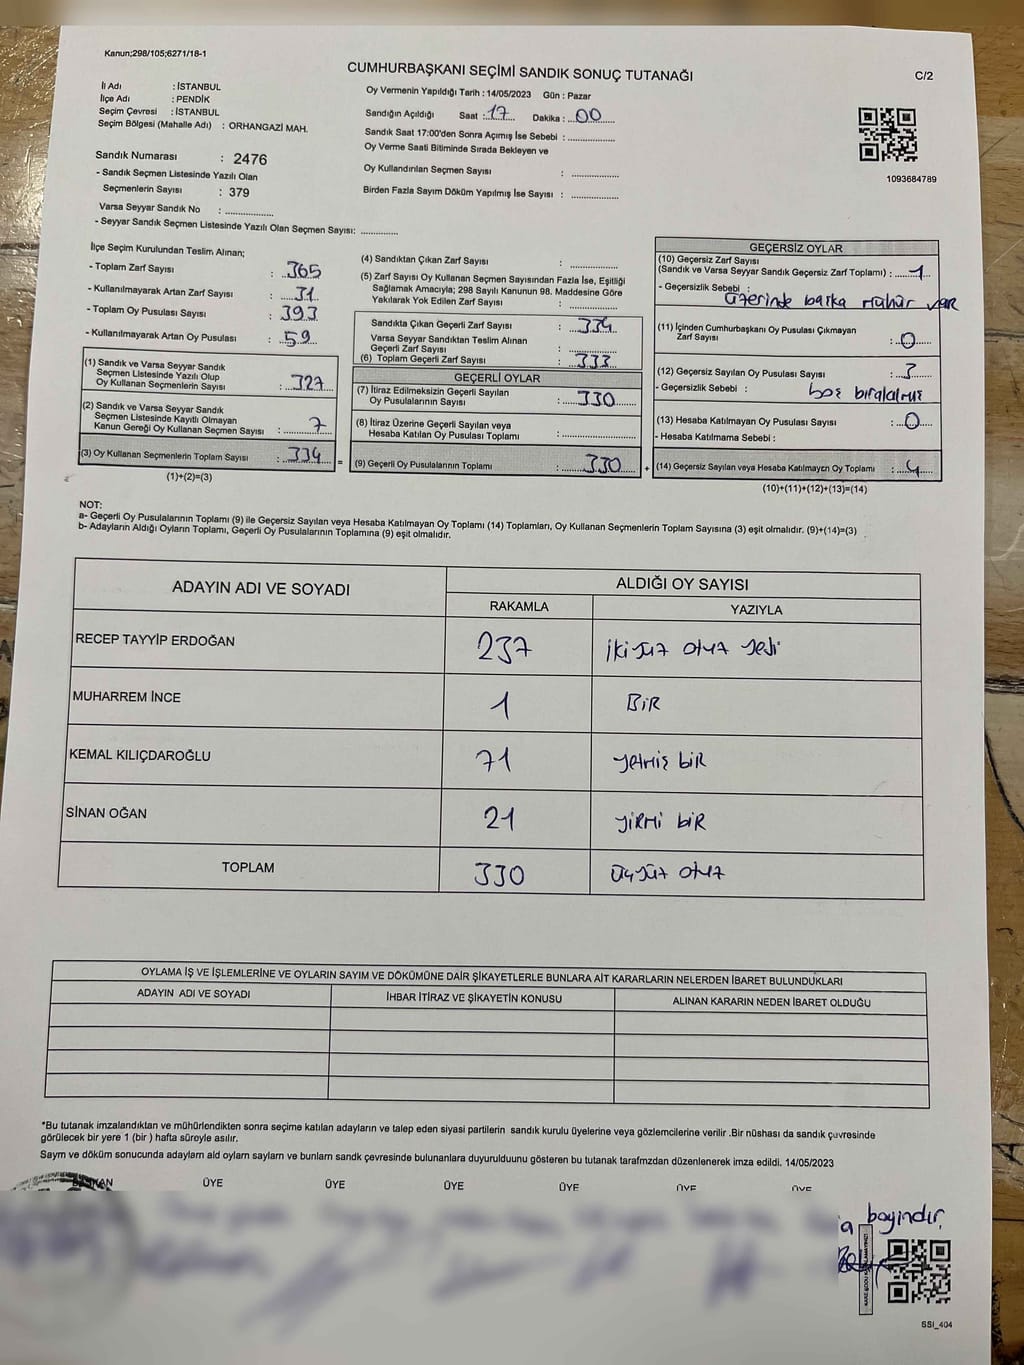 Kanun;298/105;6271/18-1
CUMHURBAŞKANI SEÇİMİ SANDIK SONUÇ TUTANAĞI
C/2
İl Adı : İSTANBUL
İlçe Adı : PENDİK
Seçim Çevresi : İSTANBUL
Seçim Bölgesi (Mahalle Adı) : ORHANGAZİ MAH.
Oy Vermenin Yapıldığı Tarih : 14/05/2023 Gün : Pazar
Sandığın Açıldığı Saat : 17 Dakika : 00
Sandık Saat 17:00'den Sonra Açımış İse Sebebi :
Oy Verme Saati Bitiminde Sırada Bekleyen ve
Oy Kullandırılan Seçmen Sayısı :
Birden Fazla Sayım Döküm Yapılmış İse Sayısı :
1093684789
Sandık Numarası : 2476
- Sandık Seçmen Listesinde Yazılı Olan
Seçmenlerin Sayısı : 379
Varsa Seyyar Sandık No :
- Seyyar Sandık Seçmen Listesinde Yazılı Olan Seçmen Sayısı:
İlçe Seçim Kurulundan Teslim Alınan;
- Toplam Zarf Sayısı : 365
- Kullanılmayarak Artan Zarf Sayısı : 31
- Toplam Oy Pusulası Sayısı : 393
- Kullanılmayarak Artan Oy Pusulası : 59
(1) Sandık ve Varsa Seyyar Sandık
Seçmen Listesinde Yazılı Olup
Oy Kullanan Seçmenlerin Sayısı : 327
(2) Sandık ve Varsa Seyyar Sandık
Seçmen Listesinde Kayıtlı Olmayan
Kanun Gereği Oy Kullanan Seçmen Sayısı : 7
(3) Oy Kullanan Seçmenlerin Toplam Sayısı : 334
(1)+(2)=(3)
(4) Sandıktan Çıkan Zarf Sayısı :
(5) Zarf Sayısı Oy Kullanan Seçmen Sayısından Fazla İse, Eşitliği
Sağlamak Amacıyla; 298 Sayılı Kanunun 98. Maddesine Göre
Yakılarak Yok Edilen Zarf Sayısı :
Sandıkta Çıkan Geçerli Zarf Sayısı : 334
Varsa Seyyar Sandıktan Teslim Alınan
Geçerli Zarf Sayısı :
(6) Toplam Geçerli Zarf Sayısı : 333
=
GEÇERLİ OYLAR
(7) İtiraz Edilmeksizin Geçerli Sayılan
Oy Pusulalarının Sayısı : 330
(8) İtiraz Üzerine Geçerli Sayılan veya
Hesaba Katılan Oy Pusulası Toplamı :
(9) Geçerli Oy Pusulalarının Toplamı : 330
+
GEÇERSİZ OYLAR
(10) Geçersiz Zarf Sayısı
(Sandık ve Varsa Seyyar Sandık Geçersiz Zarf Toplamı) : 1
- Geçersizlik Sebebi :
üzerinde başka mühür var
(11) İçinden Cumhurbaşkanı Oy Pusulası Çıkmayan
Zarf Sayısı : 0
(12) Geçersiz Sayılan Oy Pusulası Sayısı : 3
- Geçersizlik Sebebi : boş bırakılmış
(13) Hesaba Katılmayan Oy Pusulası Sayısı : 0
- Hesaba Katılmama Sebebi :
(14) Geçersiz Sayılan veya Hesaba Katılmayan Oy Toplamı : 4
(10)+(11)+(12)+(13)=(14)
NOT:
a- Geçerli Oy Pusulalarının Toplamı (9) ile Geçersiz Sayılan veya Hesaba Katılmayan Oy Toplamı (14) Toplamları, Oy Kullanan Seçmenlerin Toplam Sayısına (3) eşit olmalıdır. (9)+(14)=(3)
b- Adayların Aldığı Oyların Toplamı, Geçerli Oy Pusulalarının Toplamına (9) eşit olmalıdır.
ADAYIN ADI VE SOYADI
ALDIĞI OY SAYISI
RAKAMLA YAZIYLA
RECEP TAYYİP ERDOĞAN 237 iki yüz otuz yedi
MUHARREM İNCE 1 BİR
KEMAL KILIÇDAROĞLU 71 yetmiş bir
SİNAN OĞAN 21 yirmi bir
TOPLAM 330 üçyüz otuz
OYLAMA İŞ VE İŞLEMLERİNE VE OYLARIN SAYIM VE DÖKÜMÜNE DAİR ŞİKAYETLERLE BUNLARA AİT KARARLARIN NELERDEN İBARET BULUNDUKLARI
ADAYIN ADI VE SOYADI İHBAR İTİRAZ VE ŞİKAYETİN KONUSU ALINAN KARARIN NEDEN İBARET OLDUĞU
*Bu tutanak imzalandıktan ve mühürlendikten sonra seçime katılan adayların ve talep eden siyasi partilerin sandık kurulu üyelerine veya gözlemcilerine verilir .Bir nüshası da sandık çevresinde
görülecek bir yere 1 (bir ) hafta süreyle asılır.
Sayım ve döküm sonucunda adaylarn ald oylarn saylarn ve bunlarn sandk çevresinde bulunanlara duyurulduunu gösteren bu tutanak tarafmzdan düzenlenerek imza edildi. 14/05/2023
ÜYE ÜYE ÜYE ÜYE ÜYE ÜYE
bayındır
SSI_404